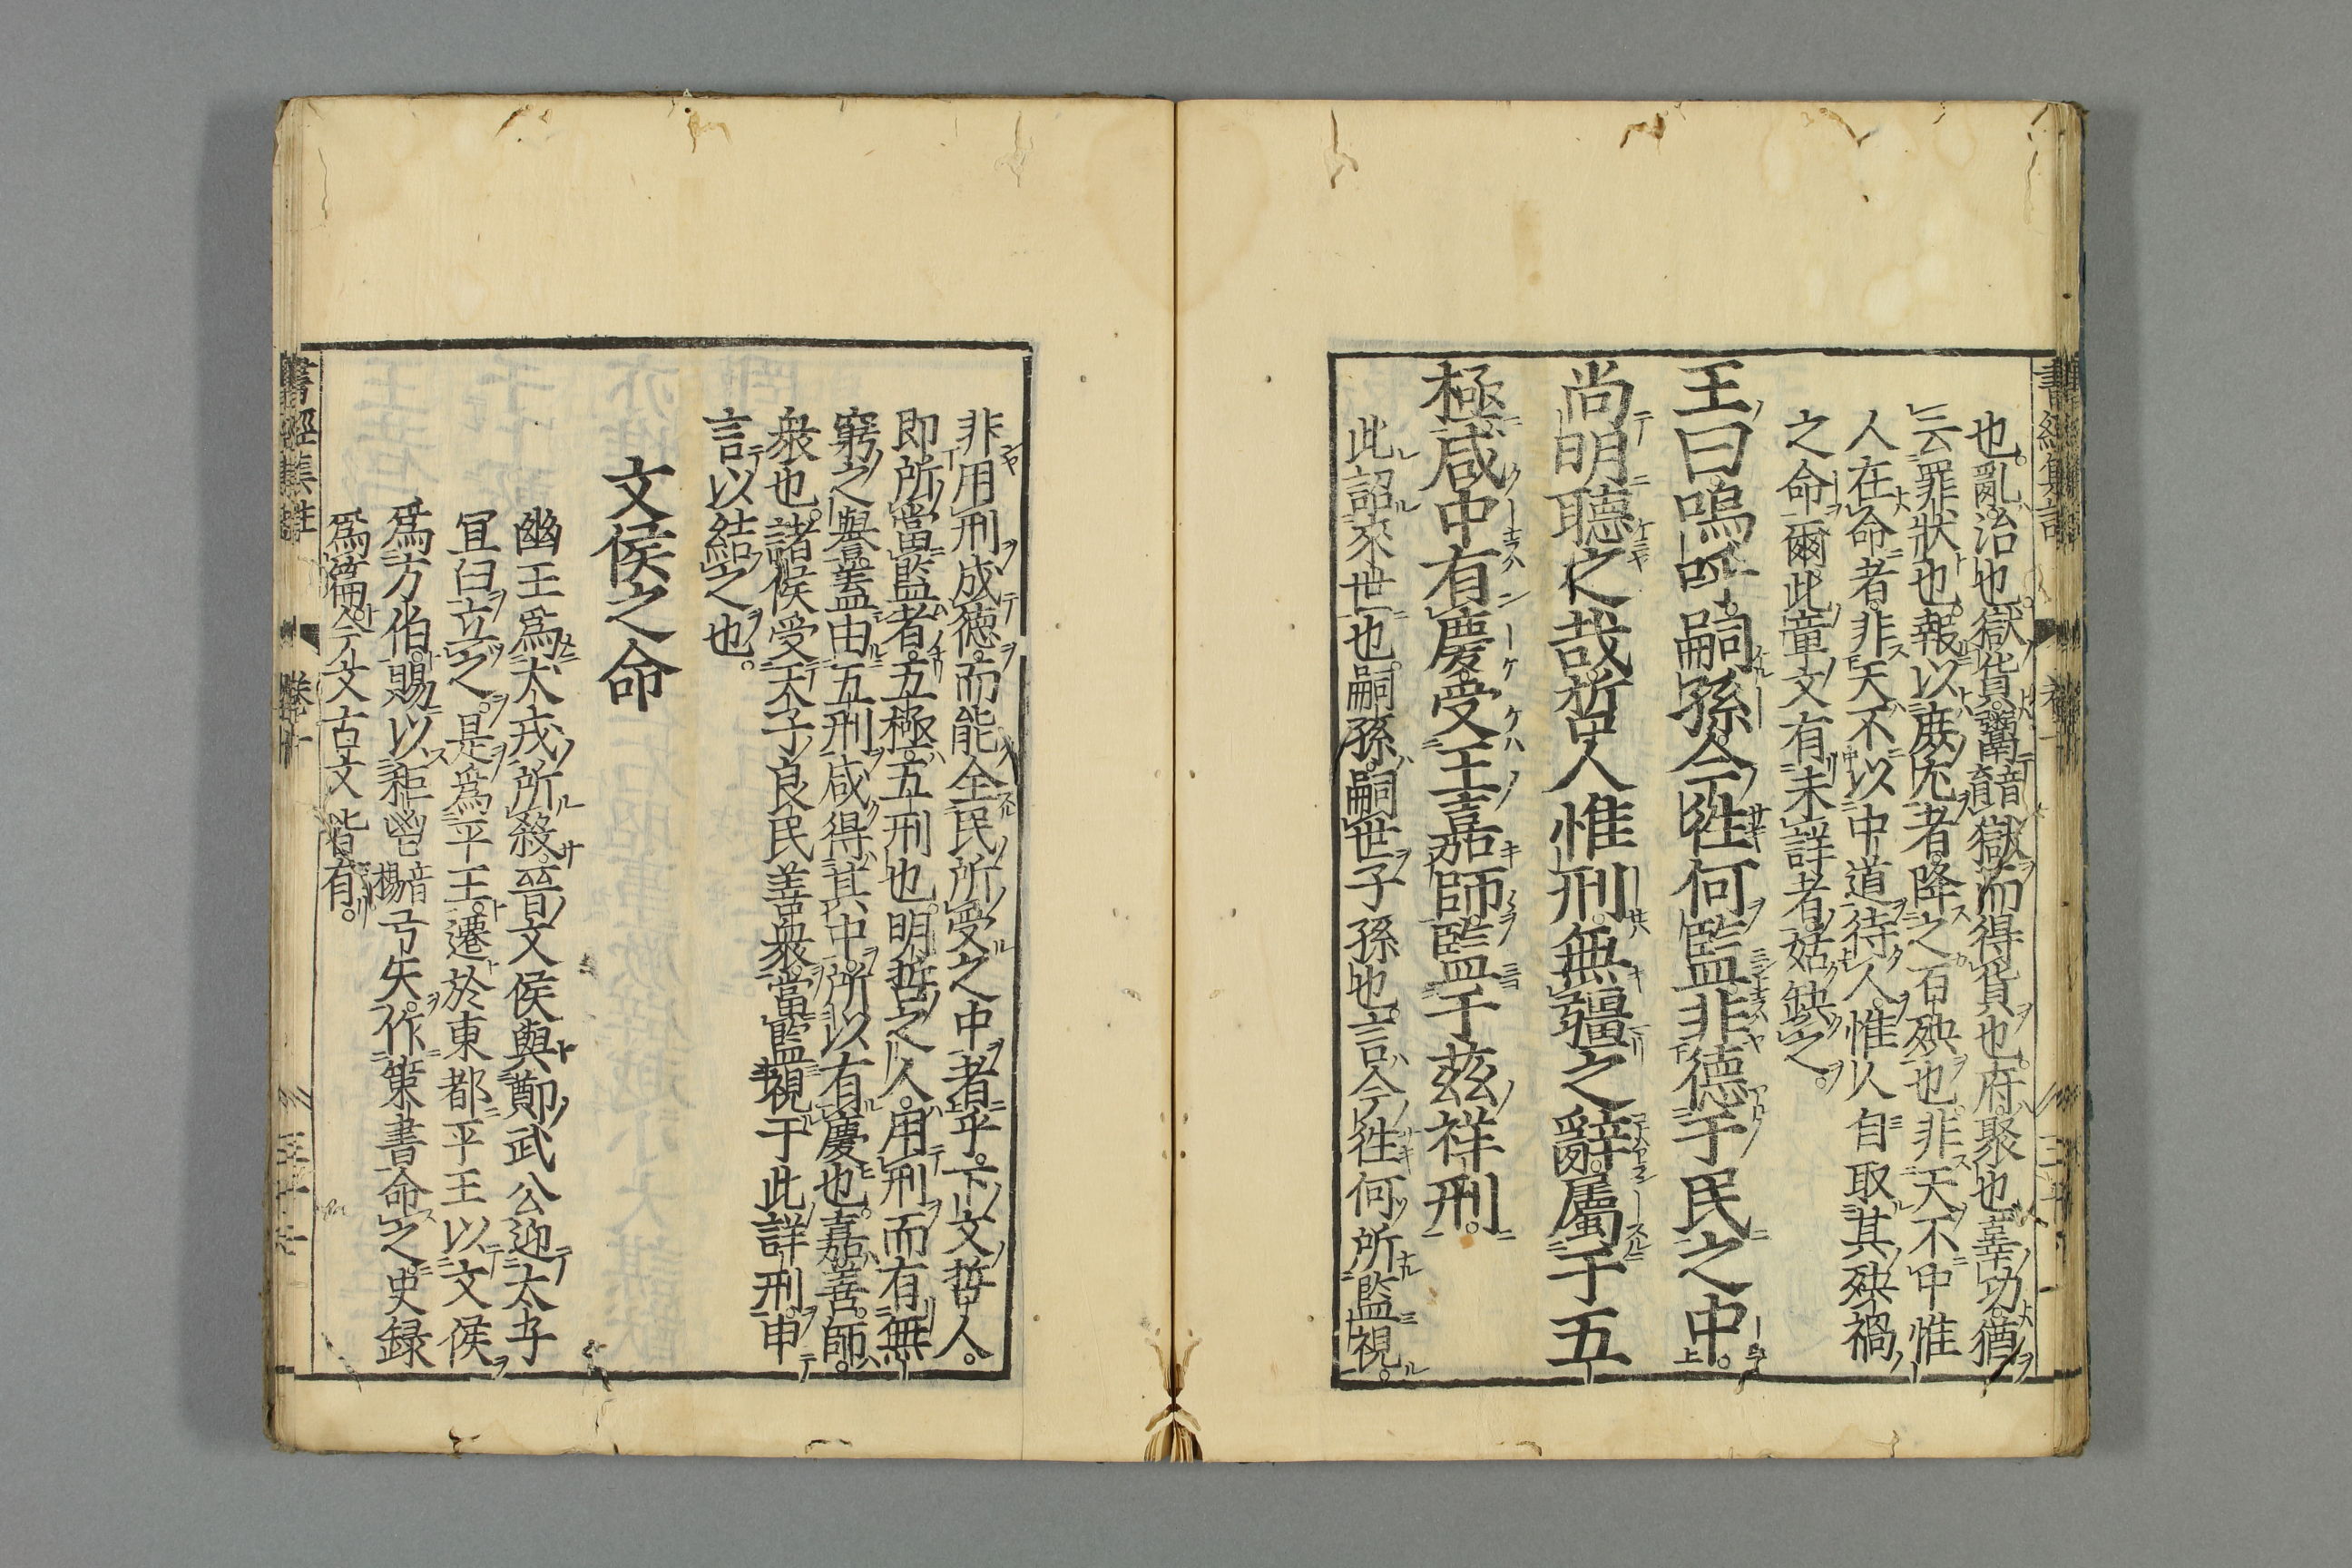 也亂治也獄貨鬻獄而得貨也府聚也辜功猶
云罪狀也報以庶尤者降之百殃也非天不中惟
人在命者非天不以中道待人惟人自取其殃禍
之命爾此章文有未詳者姑缺之
王曰嗚呼嗣孫今往何監非德于民之中
尚明聽之哉哲人惟刑無疆之辭屬于五
極咸中有慶受王嘉師監于茲祥刑
此詔來世也嗣孫嗣世子孫也言今往何所監視
非用刑成德而能全民所受之中者乎下文哲人
即所當監者五極五刑也明哲之人用刑而有無
窮之譽蓋由五刑咸得其中所以有慶也嘉善師
衆也諸侯受天子良民善衆當監視于此詳刑申
言以結之也
文侯之命
幽王爲犬戎所殺晉文侯與鄭武公迎太子
宜臼立之是爲平王遷於東都平王以文侯
爲方伯賜以秬鬯弓矢作策書命之史錄
爲篇今文古文皆有
書經集註 卷十